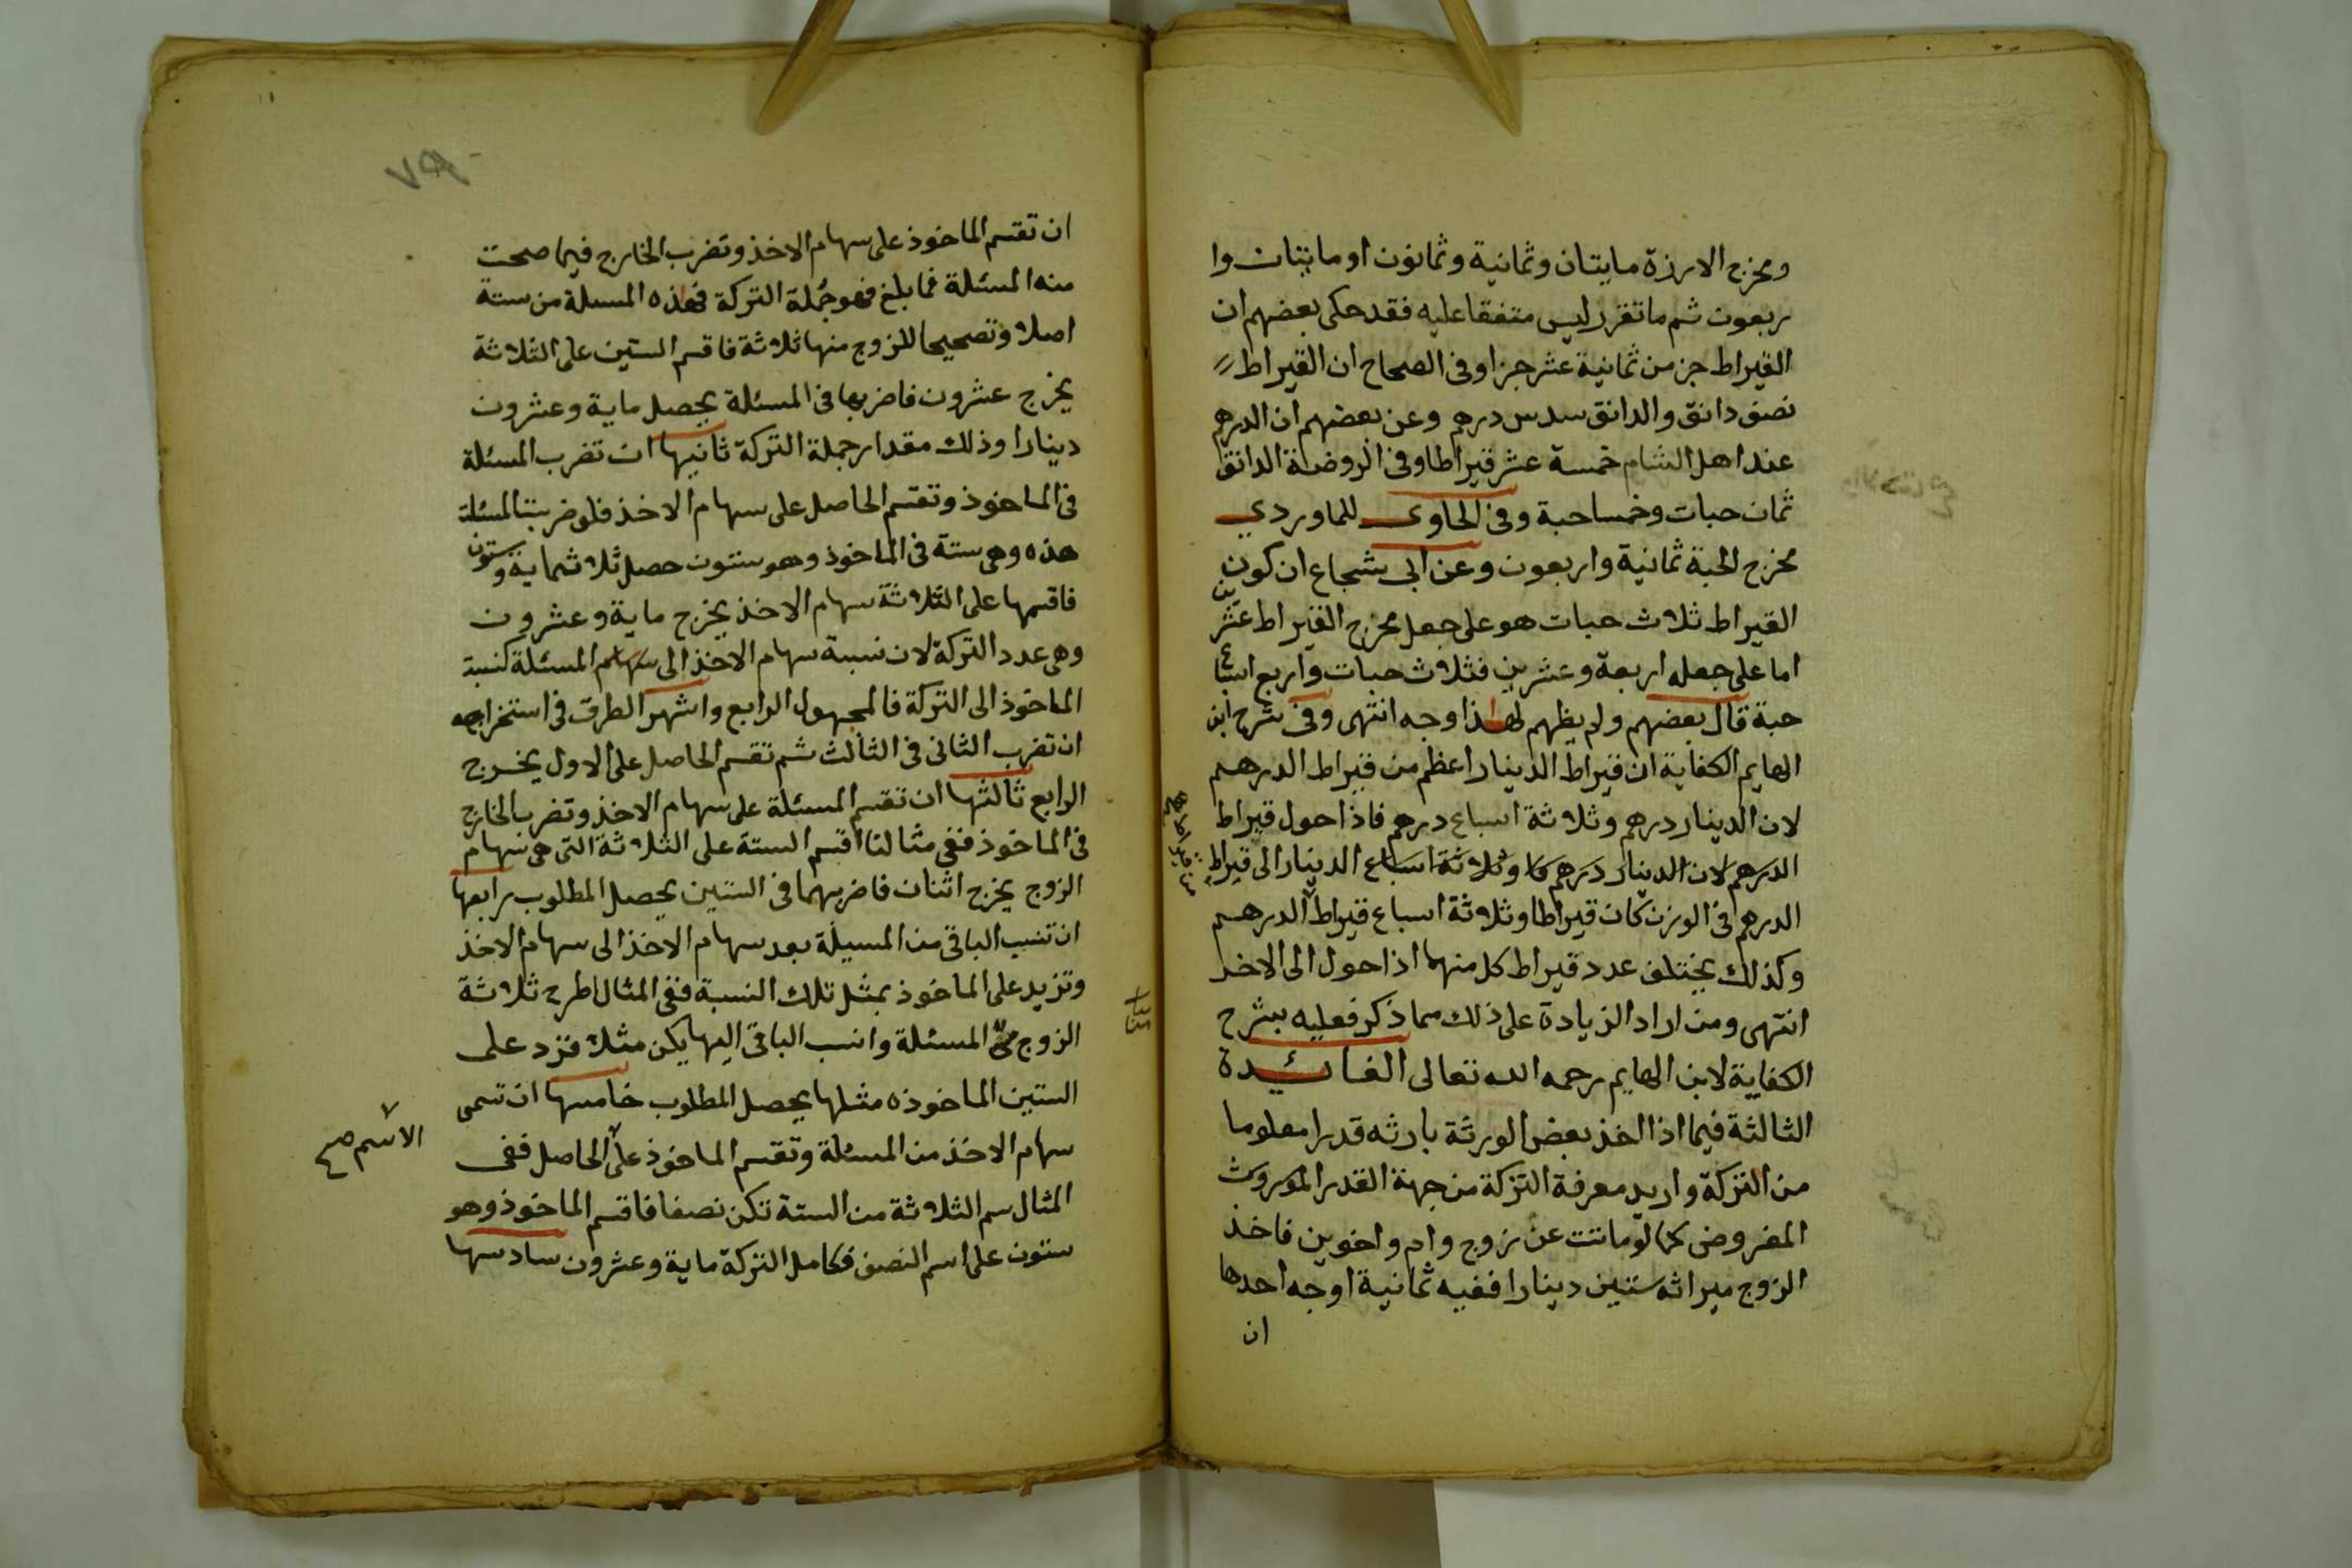 ومخرج الارزة مايتان وثمانية وثمانون او مايتان وا
ربعون ثم ما تقرر ليس متفقا عليه فقد حكى بعضهم ان
القيراط جز من ثمانية عشر جزا وفى الصحاح ان القيراط
نصف دانق والدانق سدس درهم وعن بعضهم ان الدرهم
عند اهل الشام خمسة عشر قيراطا وفى الروضة الدانق
ثمان حبات وخمسا حبة وفى الحاوى للماوردي
مخرج الحبة ثمانية واربعون وعن ابى شجاع ان كون
القيراط ثلاث حبات هو على جعل مخرج القيراط عشرين
اما على جعله اربعة وعشرين فثلاث حبات واربع اسباع
حبة قال بعضهم ولم يظهر لهذا وجه انتهى وفى شرح ابن
الهايم الكفاية ان قيراط الدينار اعظم من قيراط الدرهم
لان الدينار درهم وثلاثة اسباع درهم فاذا حول قيراط
الدرهم لان الدينار درهم كا وثلاثة اسباع الدينار الى قيراط
الدرهم فى الوزن كان قيراطا وثلاثة اسباع قيراط الدرهم
وكذلك يختلف عدد قيراط كل منهما اذا حول الى الاخر
انتهى ومن اراد الزيادة على ذلك مما ذكر فعليه بشرح
الكفاية لابن الهايم رحمه الله تعالى الفائدة
الثالثة فيما اذا اخذ بعض الورثة بارثه قدرا معلوما
من التركة واريد معرفة التركة من جهة القدر الموروث
المفروض كما لو ماتت عن زوج وام واخوين فاخذ
الزوج ميراثه ستين دينارا ففيه ثمانية اوجه احدها
ان
ان تقسم الماخوذ على سهام الاخذ وتضرب الخارج فيما صحت
منه المسئلة فما بلغ فهو جُملة التركة فهذه المسلة من ستة
اصلا وتصحيحا للزوج منها ثلاثة فاقسم الستين على الثلاثة
يخرج عشرون فاضربها فى المسئلة يحصل ماية وعشرون
دينارا وذلك مقدار جملة التركة ثانيها ان تضرب المسئلة
فى الماخوذ وتقسم الحاصل على سهام الاخذ فلو ضربت المسئلة
هذه وهى ستة فى الماخوذ وهو ستون حصل ثلاثماية وستون
فاقسمها على الثلاثة سهام الاخذ يخرج ماية وعشرون
وهى عدد التركة لان نسبة سهام الاخذ الى سهام المسئلة كنسبة
الماخوذ الى التركة فالمجهول الرابع واشهر الطرق فى استخراجه
ان تضرب الثانى فى الثالث ثم تقسم الحاصل على الاول يخرج
الرابع ثالثها ان تقسم المسئلة على سهام الاخذ وتضرب الخارج
فى الماخوذ ففى مثالنا اقسم الستة على الثلاثة التى هى سهام
الزوج يخرج اثنان فاضربهما فى الستين يحصل المطلوب رابعها
ان تنسب الباقى من المسيلة بعد سهام الاخذ الى سهام الاخذ
وتزيد على الماخوذ بمثل تلك النسبة ففى المثال اطرح ثلاثة
الزوج من المسئلة وانسب الباقى اليها يكن مثلا فزد على
الستين الماخوذه مثلها يحصل المطلوب خامسها ان تسمى
سهام الاخذ من المسئلة وتقسم الماخوذ على الحاصل ففى
الاسم صح
المثال سم الثلاثة من الستة تكن نصفا فاقسم الماخوذ وهو
ستون على اسم النصف فكامل التركة ماية وعشرون سادسها